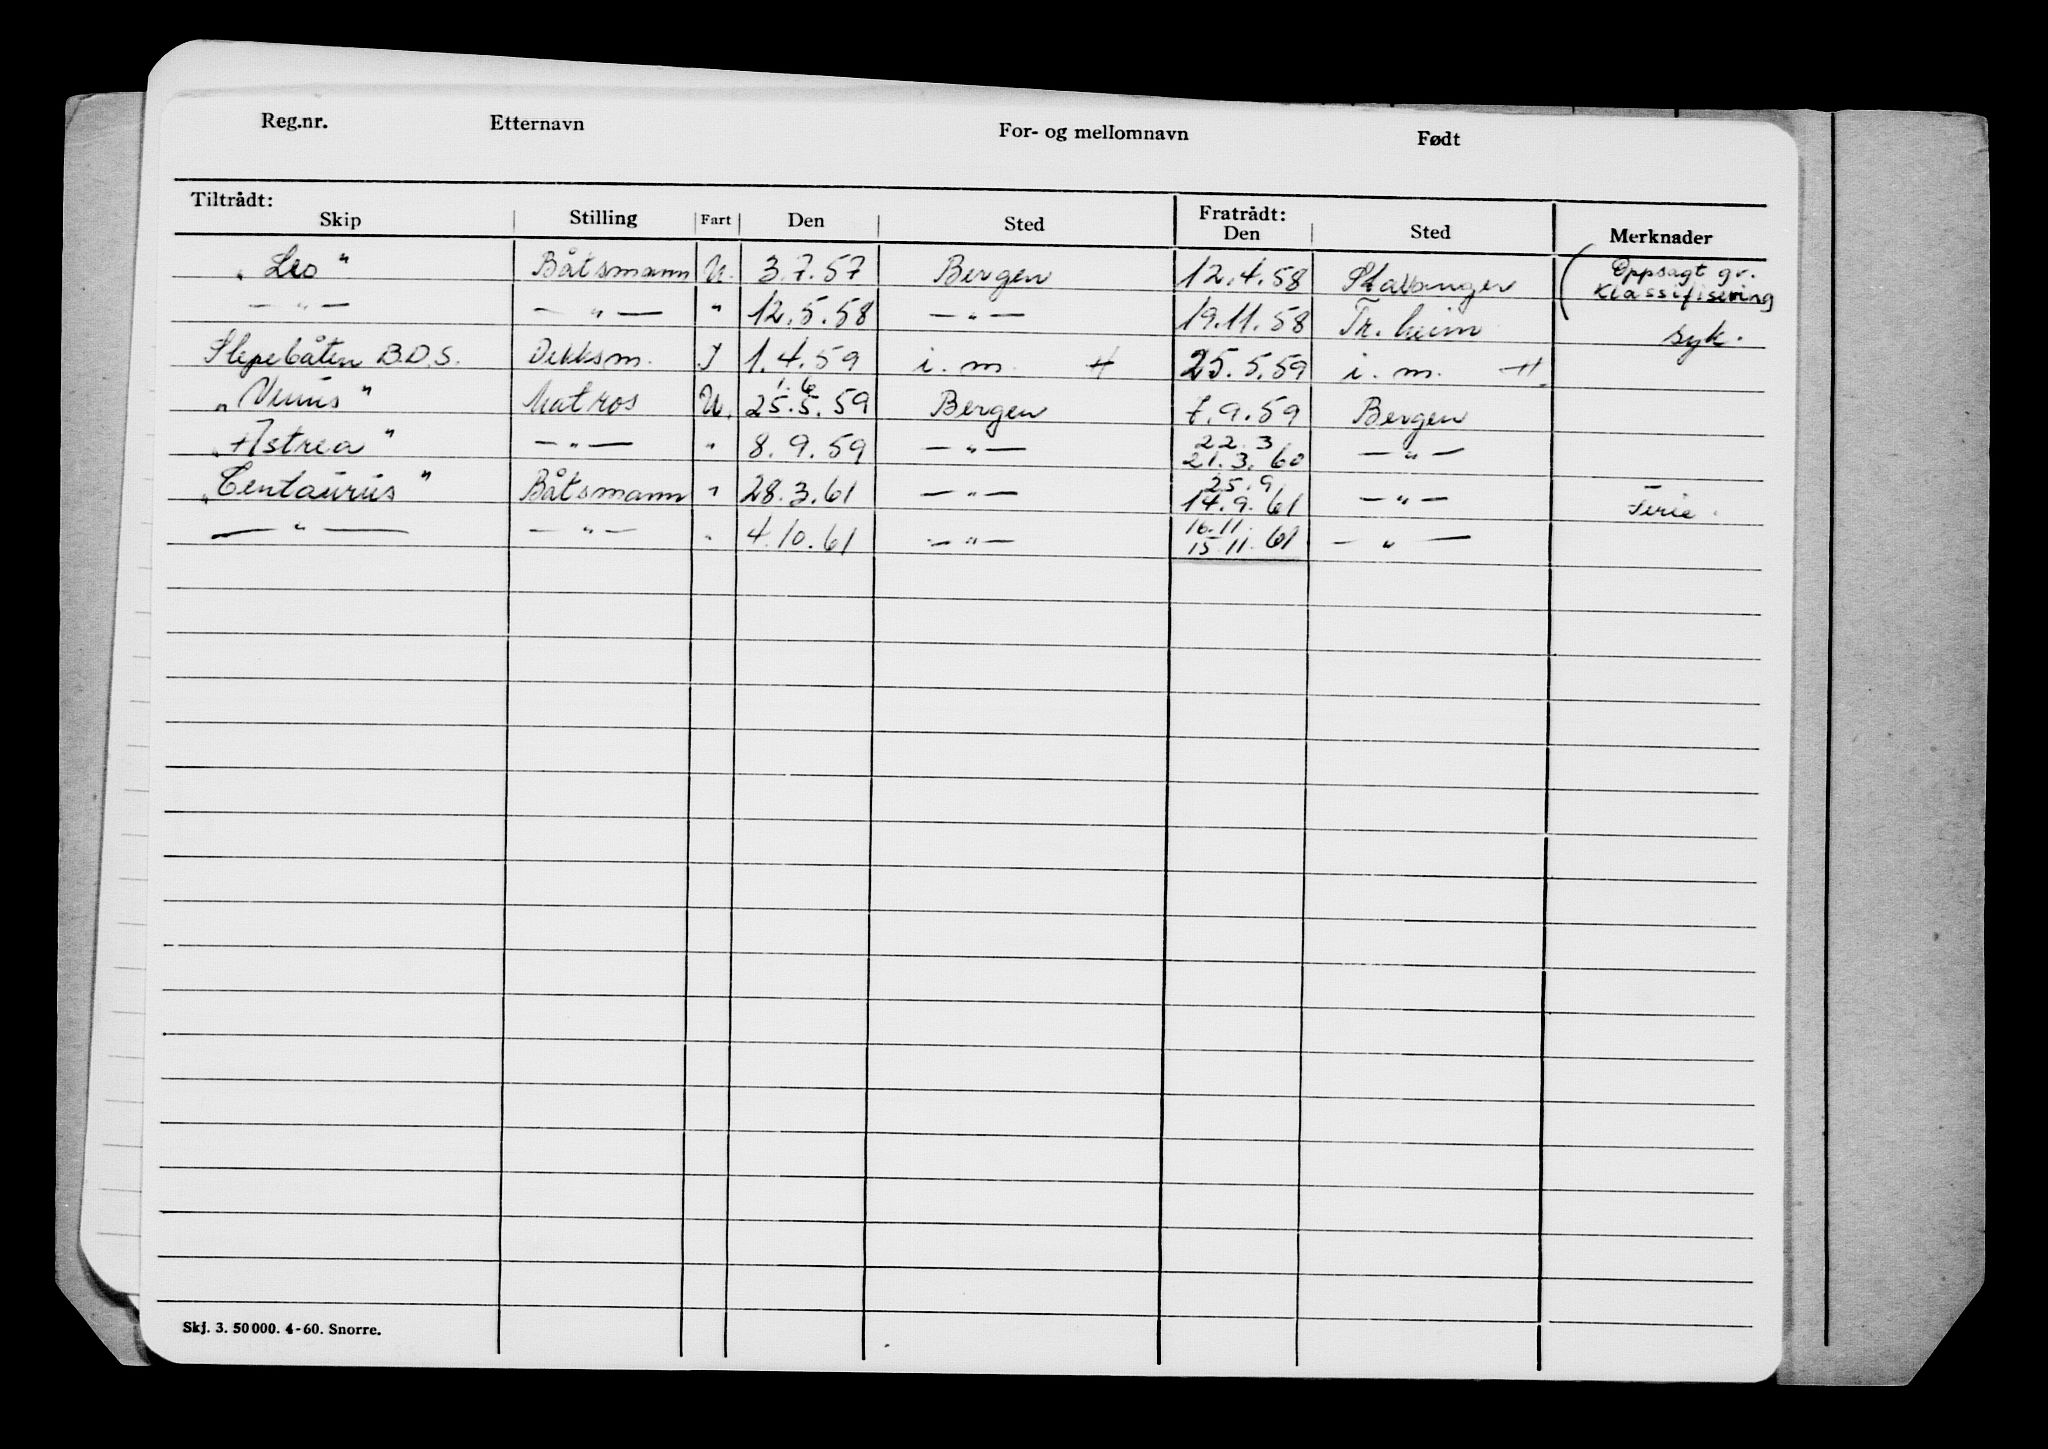 Reg.nr. Etternavn For- og mellomnavn Født
Tiltrådt: Skip Stilling Fart Den Sted Fratrådt: Den Sted Merknader
„Leo" Båtsmann U. 3.7.57 Bergen 12.4.58 Stavanger (Oppsagt gr. klassifisering
— " — — " — " 12.5.58 — " — 19.11.58 Tr.heim syk.
Slepebåten B.D.S. Dekksm. I 1.4.59 i. m. H 25.5.59 i. m. H
1.6
„Venus" Matros U. 25.5.59 Bergen 7.9.59 Bergen
22.3
„Astrea" — " — " 8.9.59 — " — 21.3.60 — " —
25.9
„Centaurus" Båtsmann " 28.3.61 — " — 14.9.61 — " — Ferie.
16.11
— " — — " — " 4.10.61 — " — 15.11.61 — " —
Skj. 3. 50000. 4-60. Snorre.